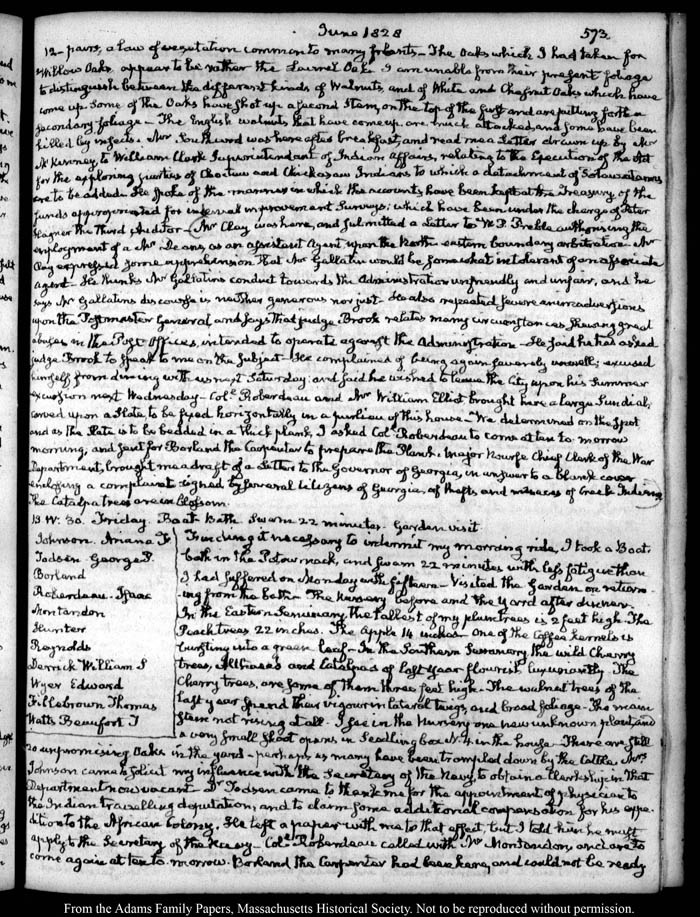 June 1828
573
12 pairs, a law of vegetation common to many plants – The Oaks which I had taken for
Willow Oaks appear to be rather the Laurel Oak. I am unable from their present foliage
to distinguish between the different kinds of Walnuts, and of White and Chesnut Oaks which have
come up. Some of the Oaks have shot up a second stem, on the top of the first and are putting forth a
secondary foliage – The English walnuts that have come up, are much attacked, and some have been
killed by insects. Mr Southard was here after breakfast, and read me a Letter drawn up by Mr
McKenney, to William Clark Superintendant of Indian Affairs, relating to the Execution of the Act
for the exploring parties of Choctaw and Chickasaw Indians to which a detachment of Potawatamies
are to be added. He spoke of the manner in which the accounts have been kept at the Treasury, of the
funds appropriated for internal improvement Surveys; which have been under the charge of Peter
Hagner the third Auditor – Mr Clay was here, and submitted a Letter to W. P. Preble authorising the
employment of a Mr Deane, as an assistant Agent upon the North-eastern boundary arbitration – Mr
Clay expressed some apprehension that Mr Gallatin would be somewhat intolerant of an associate
Agent – He thinks Mr Gallatin's conduct towards the Administration unfriendly and unfair, and he
says Mr Gallatins discourse is neither generous nor just. He also repeated severe animadversions
upon the Postmaster General and says that judge Brook relates many circumstances, shewing great
abuses in the Post Offices, intended to operate against the Administration – He said he has asked
judge Brook to speak to me on the subject – He complained of being again severely unwell; excused
himself from dining with us next Saturday; and said he wished to leave the City upon his Summer
excursion next Wednesday – Coll. Roberdeau and Mr William Elliot brought here a large Sundial,
carved upon a Slate, to be fixed horizontally in a purlieu of this house – We determined on the spot
and as the Slate is to be bedded in a thick plank, I asked Coll. Roberdeau to come at ten to-morrow
morning, and sent for Borland the Carpenter to prepare the Plank. Major Nourse Chief Clerk of the War
Department, brought me a draft of a Letter to the Governor of Georgia, in answer to a blank cover
enclosing a complaint signed by several Citizens of Georgia, of thefts and menaces of Creek Indians
The Catalpa trees are in blossom.
13. IV. 30. Friday. Boat Bath. Swam 22 minutes. Garden visit.
Johnson. Ariana J.
Todsen George P.
Borland
Roberdeau. Isaac
Montandon
Hunter
Reynolds
Derrick William S
Wyer Edward
Fillebrown Thomas
Watts Beaufort T
Finding it necessary to intermit my morning ride, I took a Boat,
bath in the Potowmack, and swam 22 minutes with less fatigue than
I had suffered on Monday with fifteen – Visited the Garden on return-
ing from the bath – The Nursery before and the Yard after dinner.
In the Eastern Seminary the tallest of my plum trees is 2 feet high. The
Peach trees 22 inches. The Apple 14 inches – One of the Coffee kernels is
bursting into a green leaf – In the Southern Seminary the wild Cherry
trees, and Catalpas of last year flourish luxuriantly. The
Cherry trees, are some of them three feet high – The walnut trees of the
last year spend their vigour in lateral twigs, and broad foliage – The main
stem not rising at all. I see in the Nursery one new unknown plant, and
a very small shoot opens in Seedling box N. 4 in the house – There are still
20 unpromising Oaks in the yard – perhaps as many have been trampled down by the Cattle. Mrs
Johnson came to solicit my influence with the Secretary of the Navy to obtain a Clerkship in that
Department now vacant – Dr Todsen came to thank me for the appointment of physician to
the Indian travelling deputation; and to claim some additional compensation for his expe-
dition to the African Colony. He left a paper with me to that effect, but I told him he must
apply to the Secretary of the Navy – Coll. Roberdeau called with Mr Montandon, and are to
come again at ten to-morrow. Borland the Carpenter had been here, and could not be ready
From the Adams Family Papers, Massachusetts Historical Society. Not to be reproduced without permission.